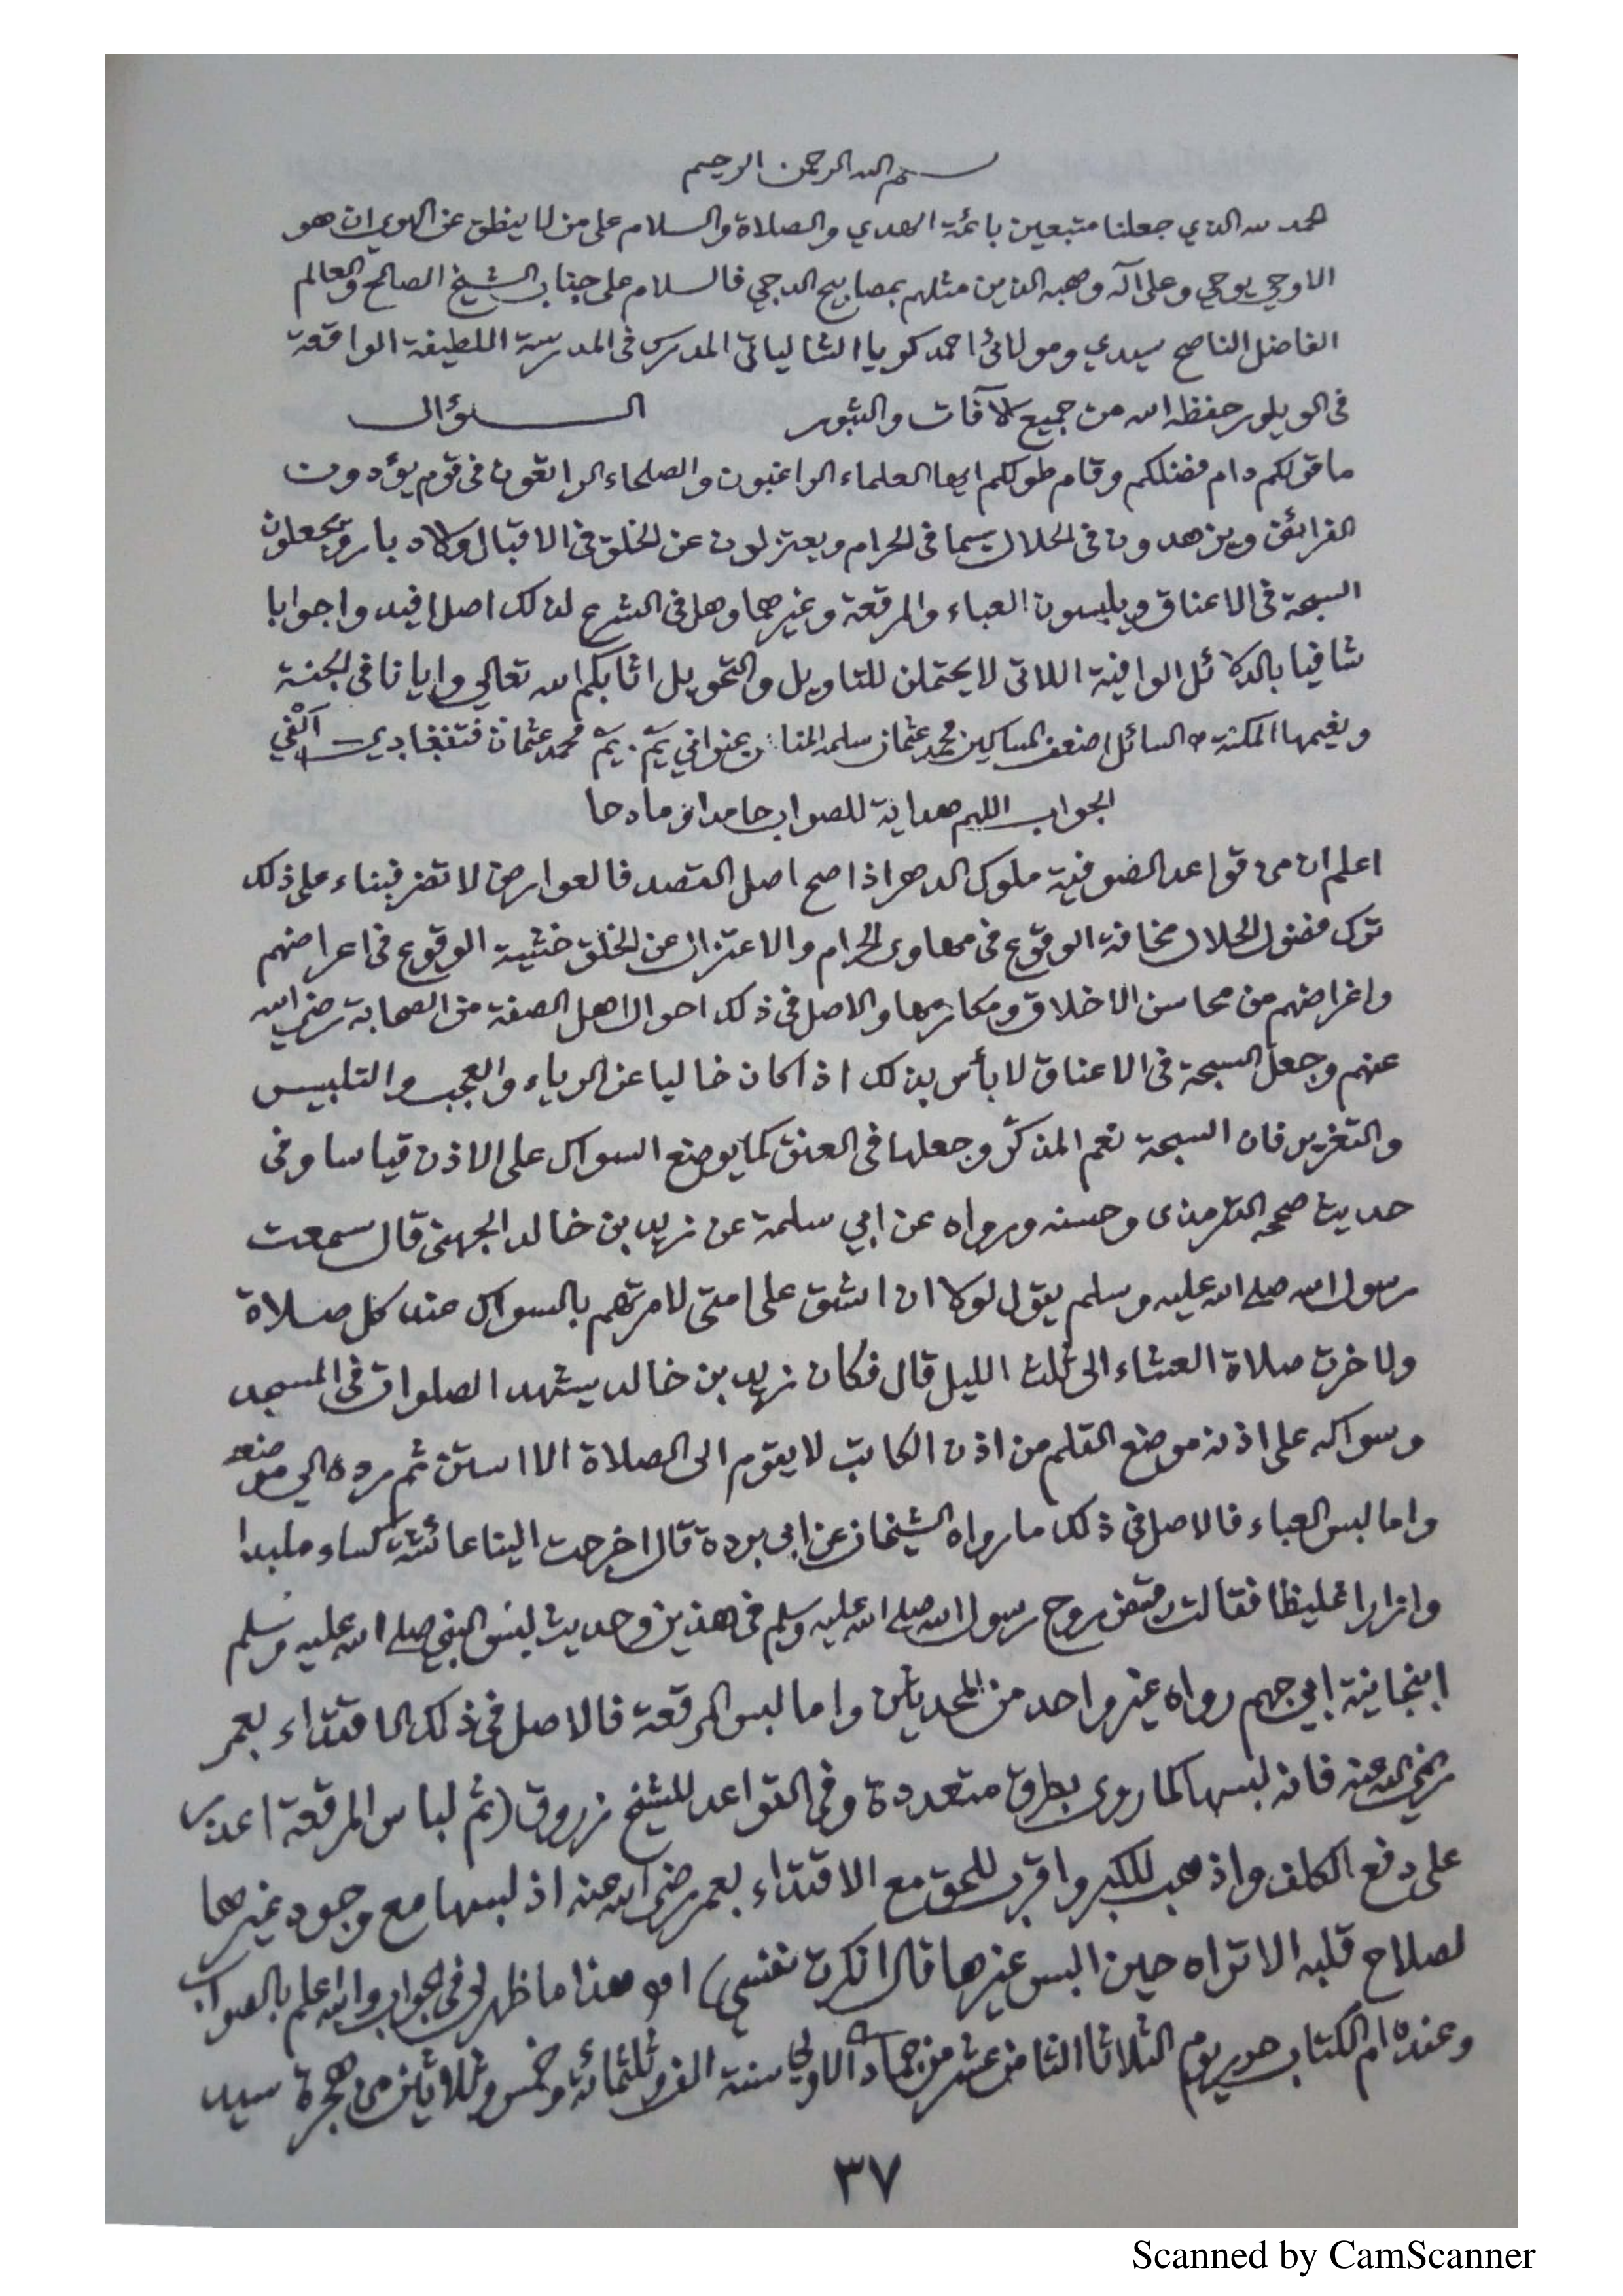 بسم الله الرحمن الرحيم
الحمد لله الذي جعلنا متبعين بائمة الهدي والصلاة والسلام على من لا ينطق عن الهوي ان هو
الا وحي يوحي وعلى آله وصحبه الذين مثلهم بمصابيح الدجي فالسلام على جناب الشيخ الصالح والعالم
الفاضل الناصح سيدي ومولائى احمد كويا الشالياتى المدرس فى المدرسة اللطيفة الواقعة
فى الويلور حفظه الله من جميع الآفات والثبور السؤال
ما قولكم دام فضلكم وقام طولكم ايها العلماء الراغبون والصلحاء الرائقون فى قوم يؤدون
الفرائض ويزهدون فى الحلال سيما فى الحرام ويعتزلون عن الخلق فى الاقبال والادبار ويجعلون
السبحة فى الاعناق ويلبسون العباء والمرقعة وغيرهما وهل فى الشرع لذلك اصل افيدوا جوابا
شافيا بالدلائل الوافية اللاتى لا يحتملن للتاويل والتحويل اثابكم الله تعالي وايانا فى الجنة
ونعيمها المكنة السائل اضعف المساكين محمد عثمان سلمه المنان بعنواني يم. يم محمد عثمان
الجواب اللهم هداية للصواب حامدا ومادحا
اعلم ان من قواعد الصوفية ملوك الدهر اذا صح اصل القصد فالعوارض لا تضر فبناء على ذلك
ترك فضول الحلال مخافة الوقوع فى مهاوى الحرام والاعتزال عن الخلق خشية الوقوع فى اعراضهم
واغراضهم من محاسن الاخلاق ومكارمها والاصل فى ذلك احوال اهل الصفة من الصحابة رضي الله
عنهم وجعل السبحة فى الاعناق لا بأس بذلك اذا كان خاليا عن الرياء والعجب والتلبيس
والتغرير فان السبحة نعم المذكّر وجعلها فى العنق كما يوضع السواك على الاذن قياسا وفى
حديث صححه الترمذى وحسنه ورواه عن ابي سلمة عن زيد بن خالد الجهنى قال سمعت
رسول الله صلى الله عليه وسلم يقول لولا ان اشق على امتى لامرتهم بالسواك عند كل صلاة
ولاخرت صلاة العشاء الى ثلث الليل قال فكان زيد بن خالد يشهد الصلوات فى المسجد
وسواكه على اذنه موضع القلم من اذن الكاتب لا يقوم الى الصلاة الا استن ثم رده الي موضعه
واما لبس العباء فالاصل فى ذلك ما رواه الشيخان عن ابى بردة قال اخرجت الينا عائشة كساء ملبدا
وازارا غليظا فقالت قبض روح رسول الله صلى الله عليه وسلم فى هذين وحديث لبس النبي صلى الله عليه وسلم
انبجانية ابي جهم رواه غير واحد من المحدثين واما لبس المرقعة فالاصل فى ذلك الاقتداء بعمر
رضي الله عنه فانه لبسها كما روى بطرق متعددة وفى القواعد للشيخ زروق (ثم لباس المرقعة اعون
على دفع الكلف واذهب للكبر واقرب للحق مع الاقتداء بعمر رضي الله عنه اذ لبسها مع وجود غيرها
لصلاح قلبه الا تراه حين البس غيرها قال انكرت نفسي) اهـ هذا ما ظهر لى فى الجواب والله اعلم بالصواب
وعنده ام الكتاب حرر يوم الثلاثا الثامن عشر من جمادى الاولي سنة الف وثلثمائة وخمس وثلاثين من هجرة سيد
٣٧
Scanned by CamScanner